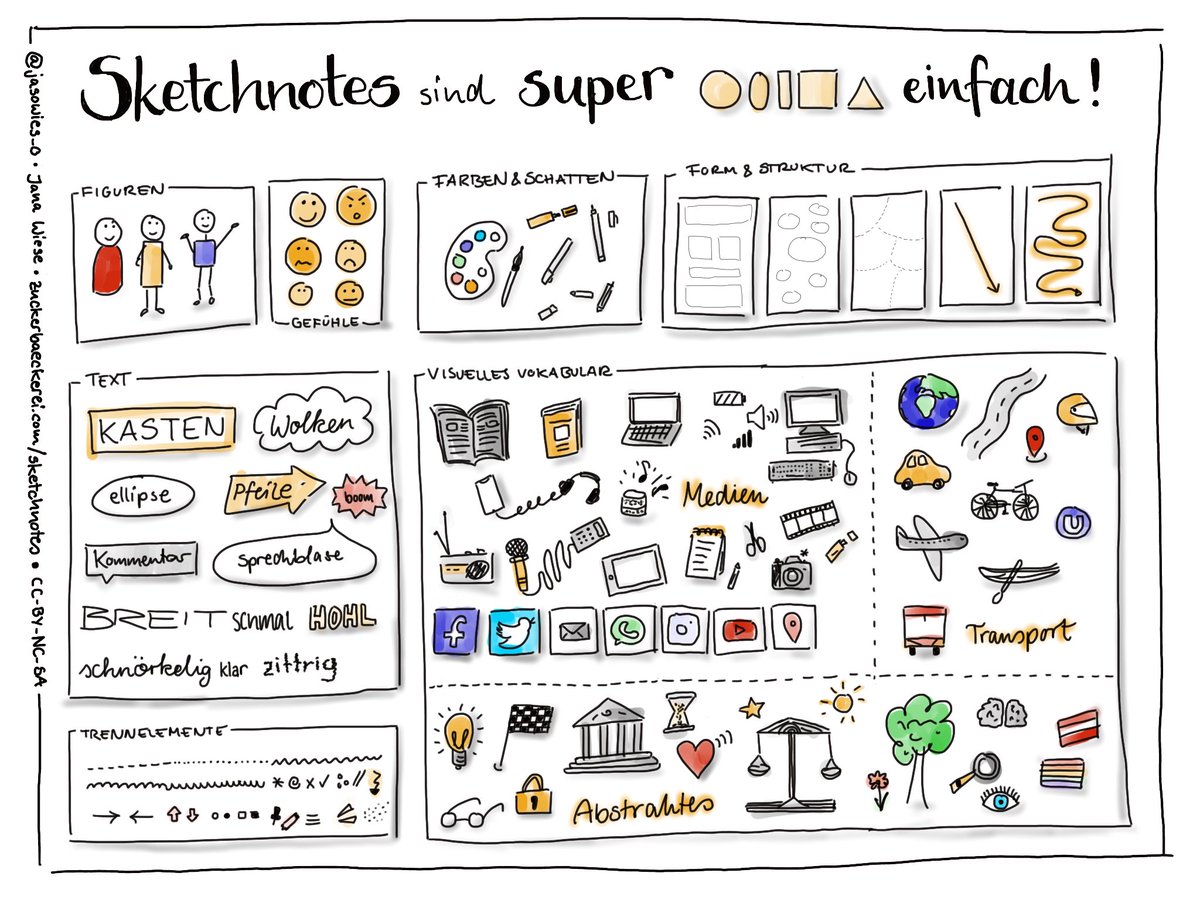 Sketchnotes sind super einfach!
@jasowies_o • Jana Wiese • zuckerbaeckerei.com/sketchnotes • CC-BY-NC-SA
FIGUREN
GEFÜHLE
FARBEN & SCHATTEN
FORM & STRUKTUR
TEXT
KASTEN
Wolken
ellipse
Pfeile
boom
Kommentar
sprechblase
BREIT schmal HOHL
schnörkelig klar zittrig
TRENNELEMENTE
VISUELLES VOKABULAR
Medien
f
U
Transport
Abstraktes